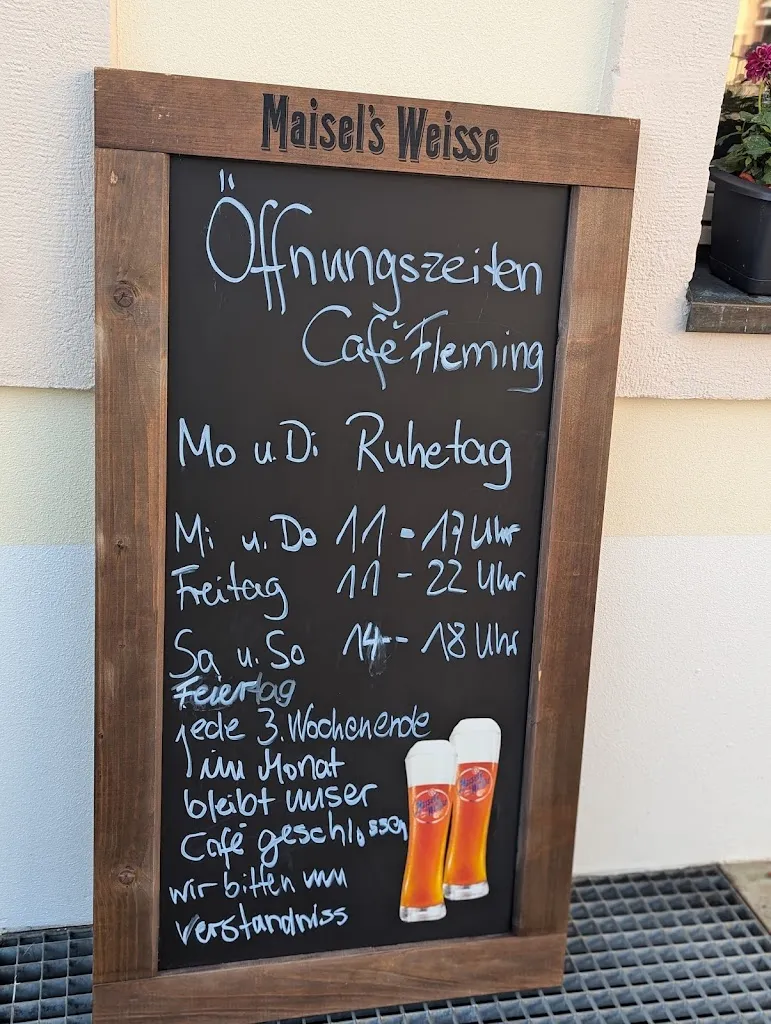 Maisel's Weisse
Öffnungszeiten
Café Fleming
Mo u. Di Ruhetag
Mi u. Do 11 - 17 Uhr
Freitag 11 - 22 Uhr
Sa u. So 14 - 18 Uhr
Feiertag
jede 3. Wochenende
im Monat
bleibt unser
Café geschlossen
wir bitten um
verständniss